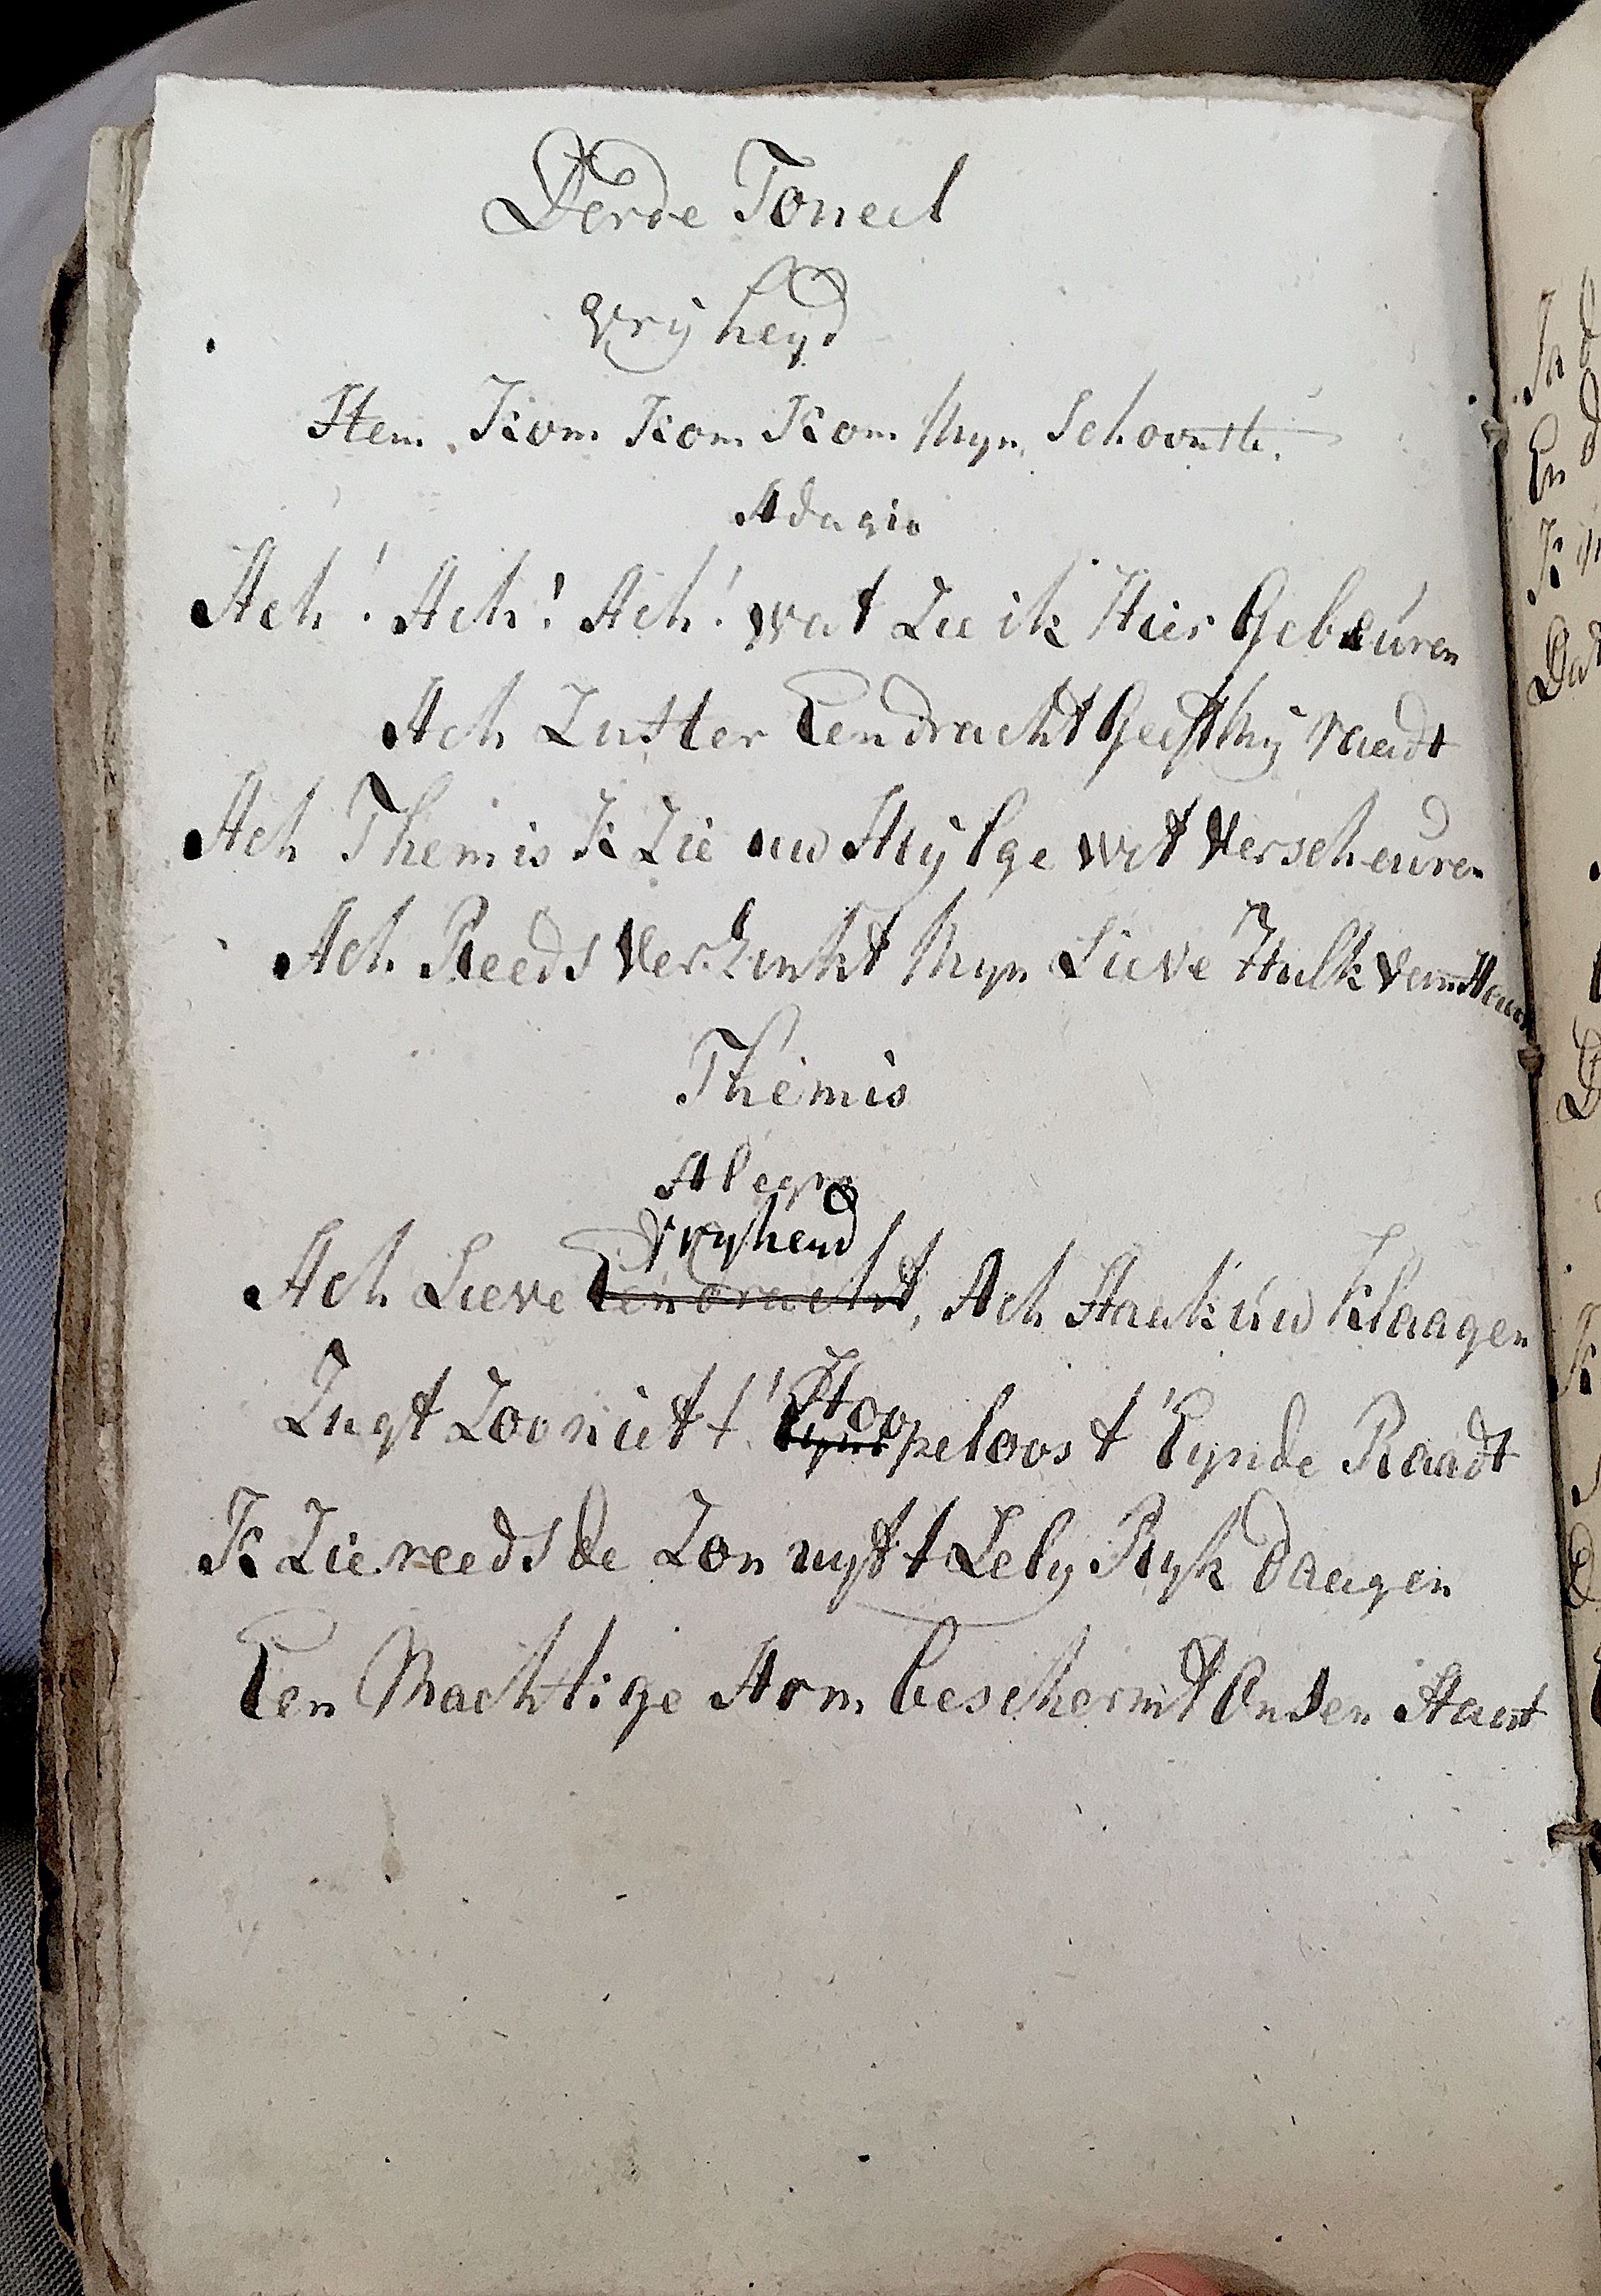 Derde Toneel
Vrijheyd
Stem. Kom Kom Kom Myn Schoonste.
Adagio
Ach! Ach! Ach! wat Zie ik Hier Gebeuren
Ach Zuster Eendracht Geeft Mij Raadt
Ach Themis K Zie uw Hijlge wet Verscheuren
Ach Reeds Verzinkt Myn Lieve Hulk
Themis
Alegro
Vryheyd
Ach Lieve Eendracht, Ach Staak úw Klaagen
Zugt Zoo niet t' Hoopeloos t' Eynde Raadt
K Zie reeds de Zon uyt t Lely Ryk daagen
Een Machtige Arm beschermt Onsen Staat